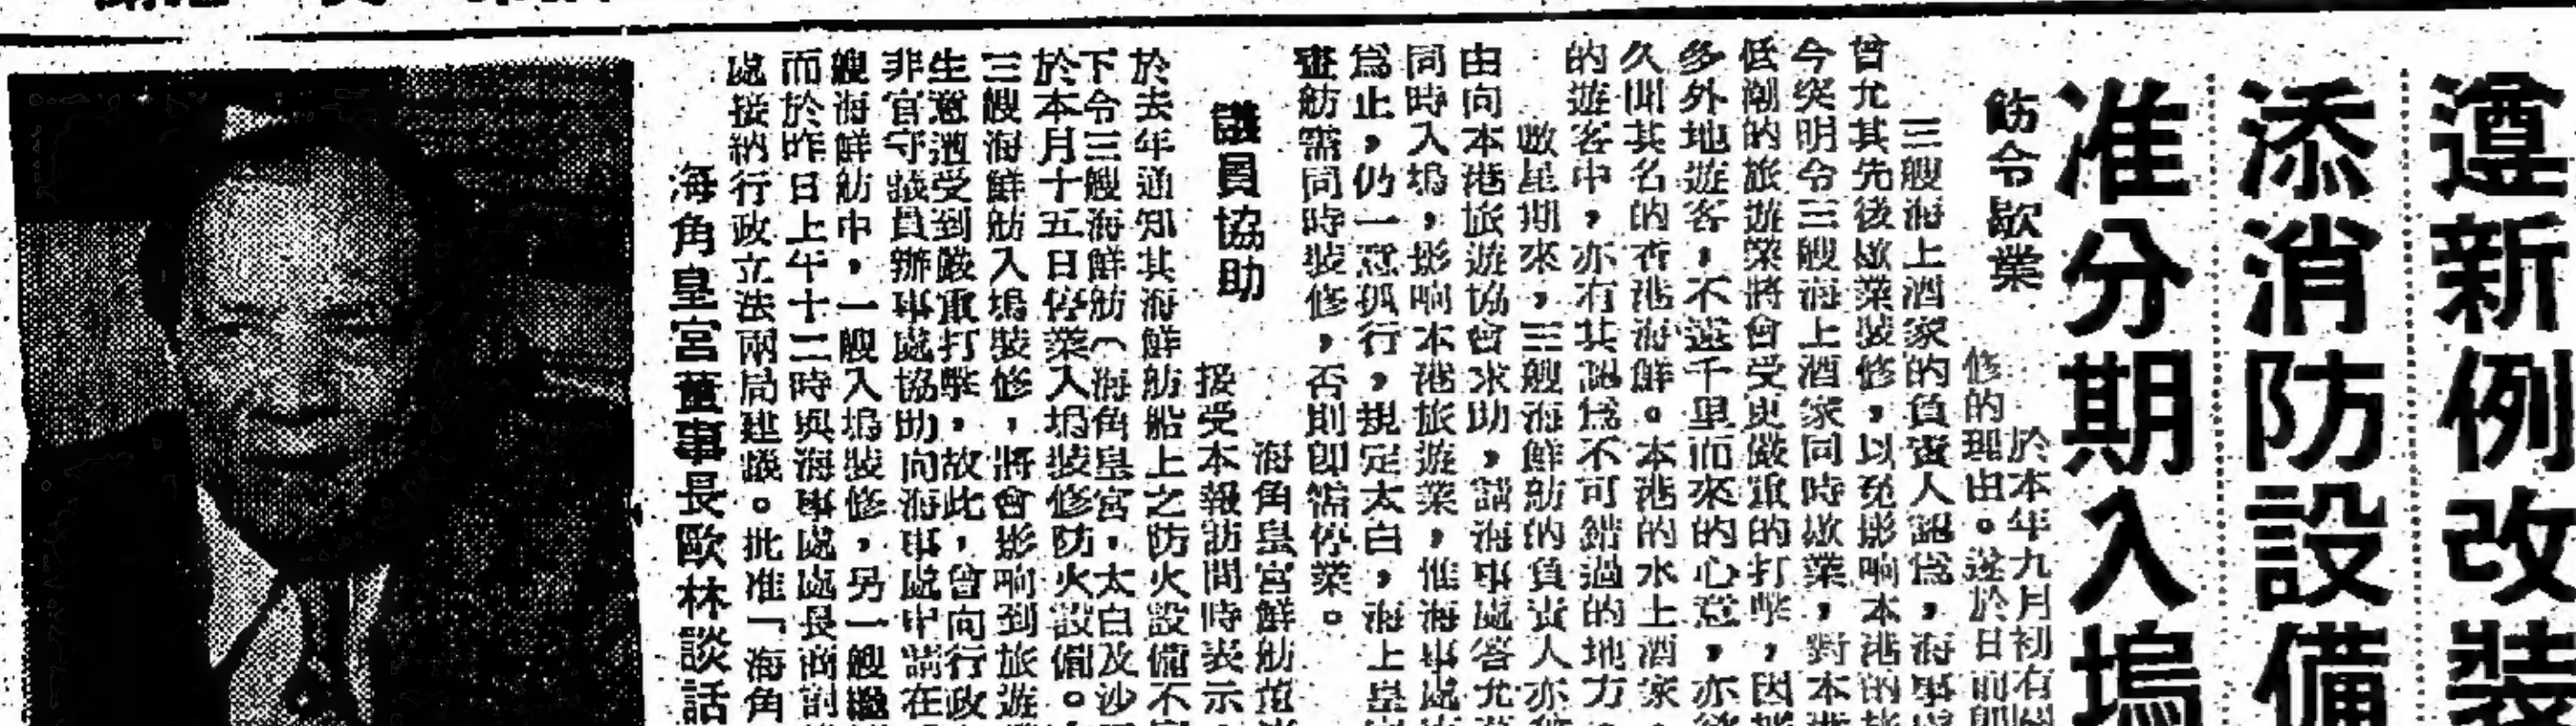 遵新例改裝
添消防設備
准分期入塢
飭令歇業
於本年九月初有
修的理由。遂於日前
三艘海上酒家的負責人認爲，海事
曾允其先後歇業裝修，以免影响本港的旅
今突明令三艘海上酒家同時歇業，對本港
低潮的旅遊業將會受更嚴重的打擊，因
多外地遊客，不遠千里而來的心意，亦
久聞其名的香港海鮮。本港的水上酒家，
的遊客中，亦有其認爲不可錯過的地方。
數星期來，三艘海鮮舫的負責人亦
由向本港旅遊協會求助，請海事處答允
同時入塢，影响本港旅遊業，惟海事處
爲止，仍一意孤行，規定太白，海上皇
畫舫需同時裝修，否則卽需停業。
議員協助
海角皇宮鮮舫董
接受本報訪問時表示，
於去年通知其海鮮舫船上之防火設備不
下令三艘海鮮舫（海角皇宮，太白及沙
於本月十五日停業入塢裝修防火設備。
三艘海鮮舫入塢裝修，將會影响到旅遊
生意遭受到嚴重打擊，故此，曾向行政
非官守議員辦事處協助向海事處申請在
艘海鮮舫中，一艘入塢裝修，另一艘繼
而於昨日上午十二時與海事處處長商討
處接納行政立法兩局建議。批准「海角
海角皇宮董事長歐林談話